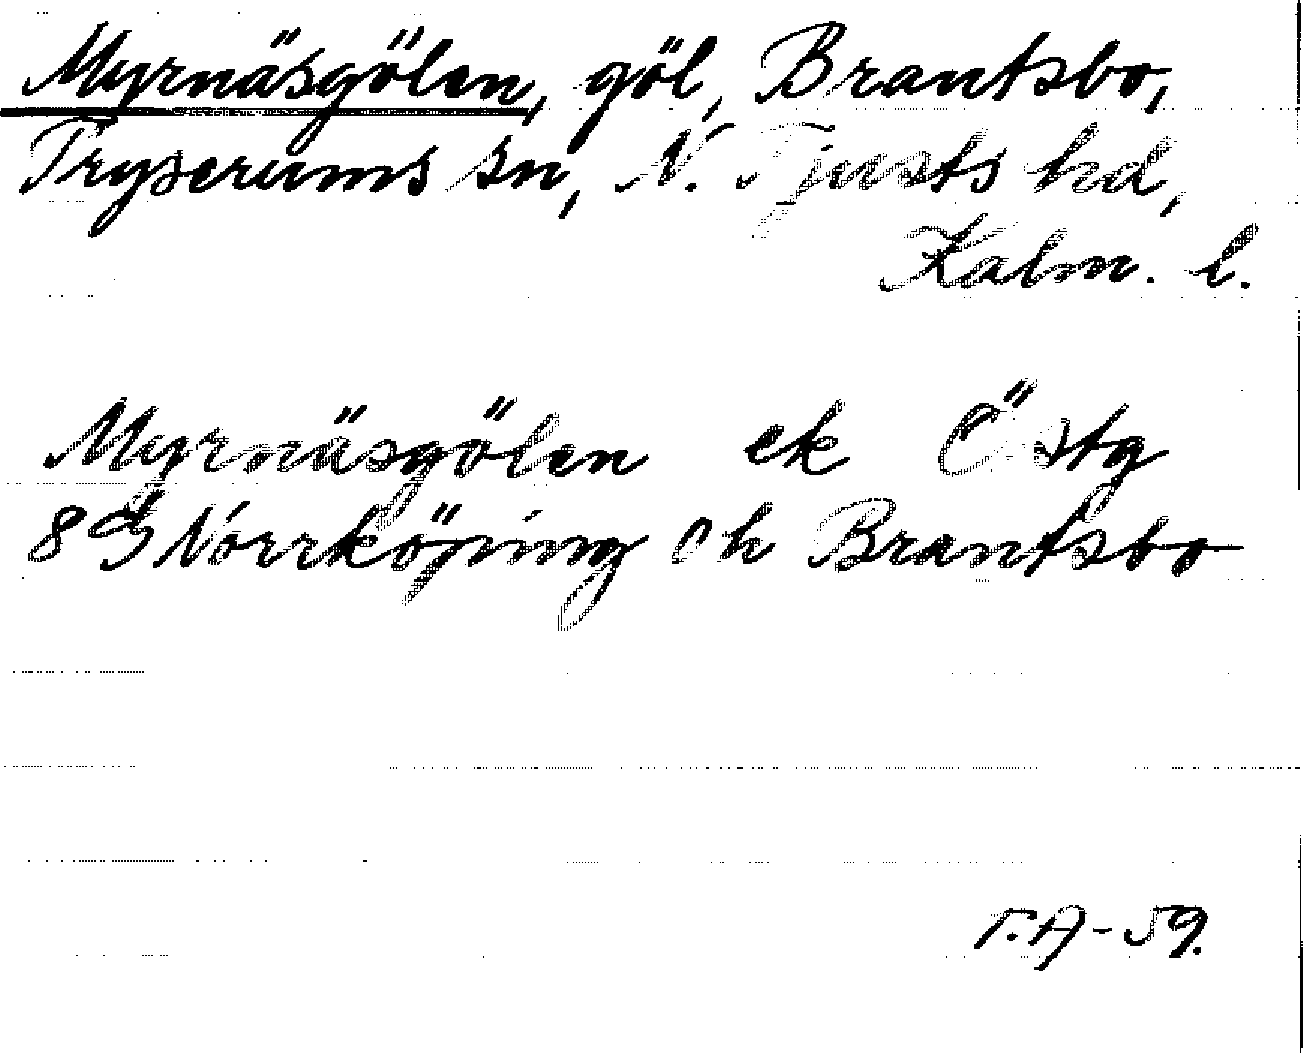 Myrnäsgölen, göl, Brantsbo,
Tryserums sn, N. Tjusts hd,
Kalm. l.
Myrnäsgölen ek Östg
8 G Norrköping Ch Brantsbo
T.A-59.